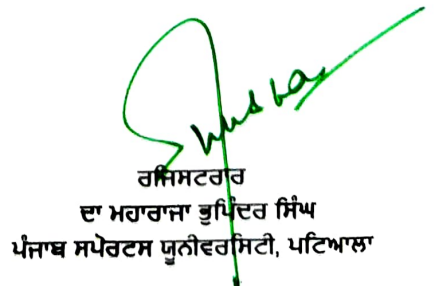 ਰਜਿਸਟਰਾਰ
ਦਾ ਮਹਾਰਾਜਾ ਭੁਪਿੰਦਰ ਸਿੰਘ
ਪੰਜਾਬ ਸਪੋਰਟਸ ਯੂਨੀਵਰਸਿਟੀ, ਪਟਿਆਲਾ